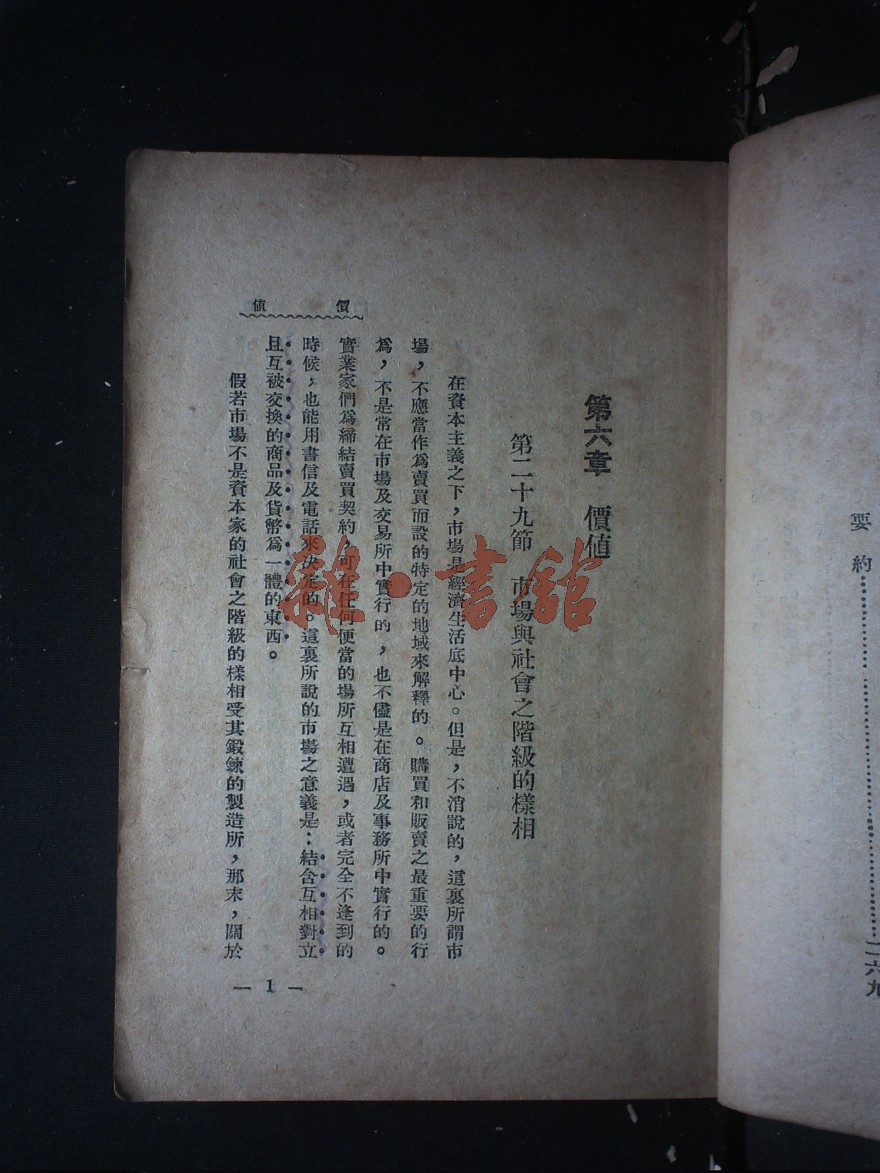 要約……………………二六九
第六章　價值
第二十九節　市場與社會之階級的樣相
在資本主義之下，市場是經濟生活底中心。但是，不消說的，這裏所謂市
場，不應當作爲賣買而設的特定的地域來解釋的。購買和販賣之最重要的行
爲，不是常在市場及交易所中實行的，也不儘是在商店及事務所中實行的。
實業家們爲締結賣買契約，可在任何便當的場所互相遭遇，或者完全不逢到的
時候，也能用書信及電話來決定的。這裏所說的市場之意義是：結合互相對立
且互被交換的商品及貨幣爲一體的東西。
假若市場不是資本家的社會之階級的樣相受其鍛鍊的製造所，那末，關於
價值
— 1 —
雜·書館